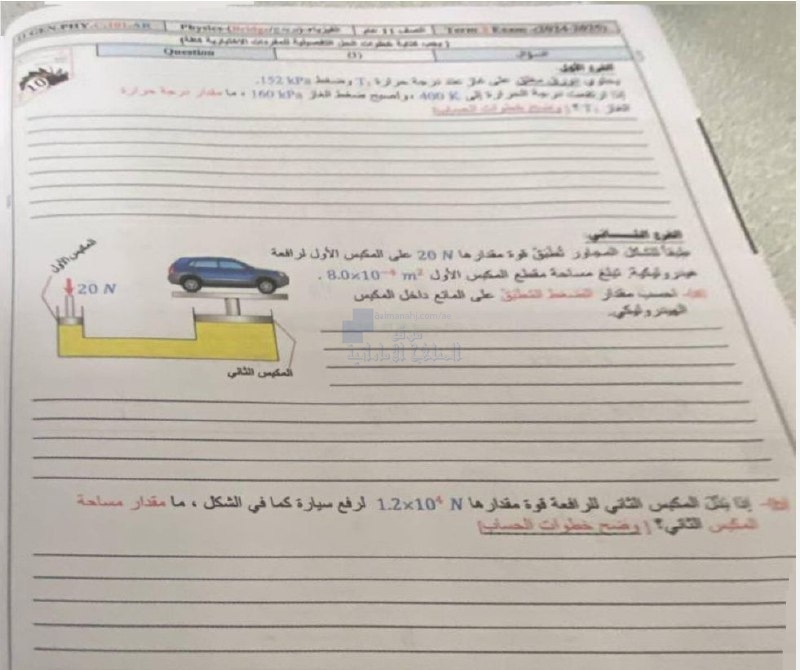 11 GEN PHY. C.101.AR | Physics-(Bridge/عام)-الفيزياء | الصف 11 عام | Term 2 Exam -(2024-2025)
( يجب كتابة خطوات الحل التفصيلية للمفردات الاختيارية )
Question (3) السؤال
10
الفرع الأول:
يحتوي على غاز عند درجة حرارة T₁ وضغط 152 kPa.
إذا ارتفعت درجة الحرارة إلى 400 K ، وأصبح ضغط الغاز 160 kPa ، ما مقدار درجة حرارة
الغاز T₁ ؟ [وضح خطوات الحساب]
الفرع الثاني:
طبقاً للشكل المجاور تُطبَّق قوة مقدارها 20 N على المكبس الأول لرافعة
هيدروليكية تبلغ مساحة مقطع المكبس الأول 8.0×10⁻⁴ m² .
احسب مقدار الضغط المُطبَّق على المائع داخل المكبس
الهيدروليكي.
المكبس الأول
20 N
المكبس الثاني
almanahj.com/ae
موقع
المناهج الإماراتية
إذا بذل المكبس الثاني للرافعة قوة مقدارها 1.2×10⁴ N لرفع سيارة كما في الشكل ، ما مقدار مساحة
المكبس الثاني؟ [ وضح خطوات الحساب]